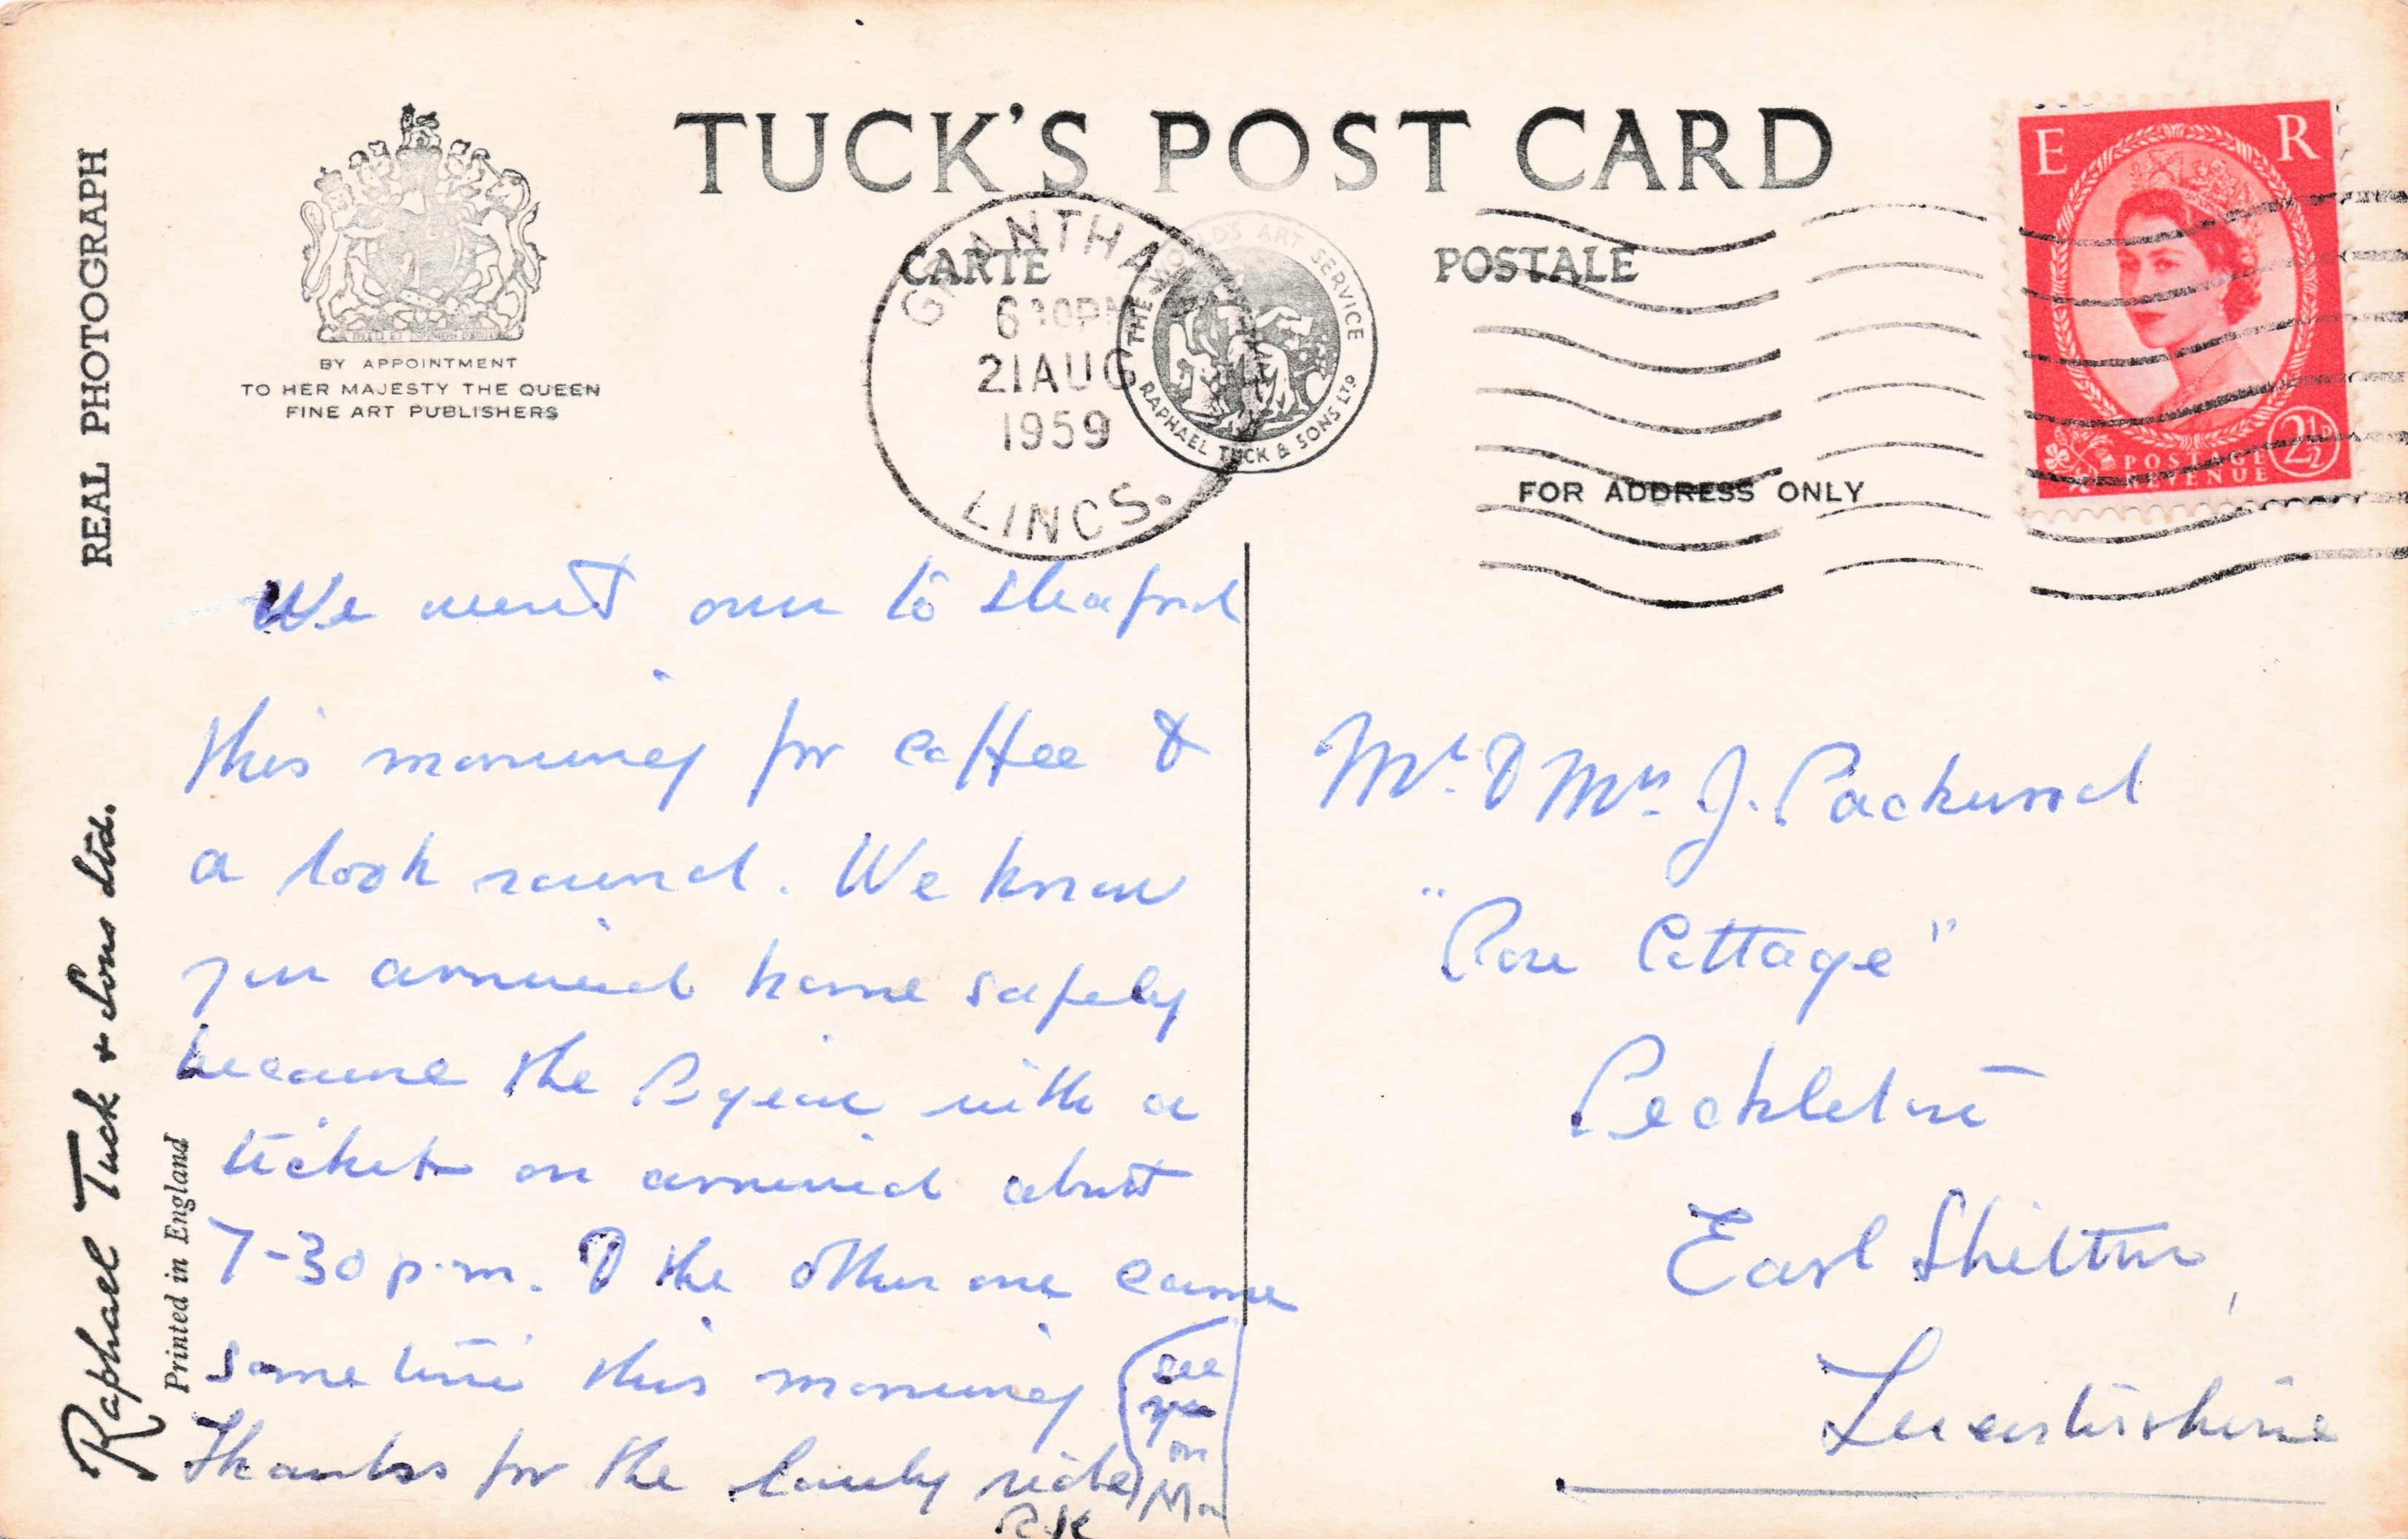 TUCK'S POST CARD
CARTE POSTALE
REAL PHOTOGRAPH
BY APPOINTMENT
TO HER MAJESTY THE QUEEN
FINE ART PUBLISHERS
GRANTHAM
6 30PM
21 AUG
1959
LINCS.
THE WORLD'S ART SERVICE
RAPHAEL TUCK & SONS LTD
E R
POSTAGE
REVENUE
2½D
FOR ADDRESS ONLY
We went over to Sleaford
this morning for coffee &
a look round. We know
you arrived home safely
because the Pigeon with a
ticket on arrived about
7-30 p.m. & the other one came
sometime this morning
Thanks for the lovely ride
see
you
on
Mr. & Mrs J. Packwood
"Rose Cottage"
Peckleton
Earl Shilton,
Leicestershire
Raphael Tuck & Sons Ltd.
Printed in England